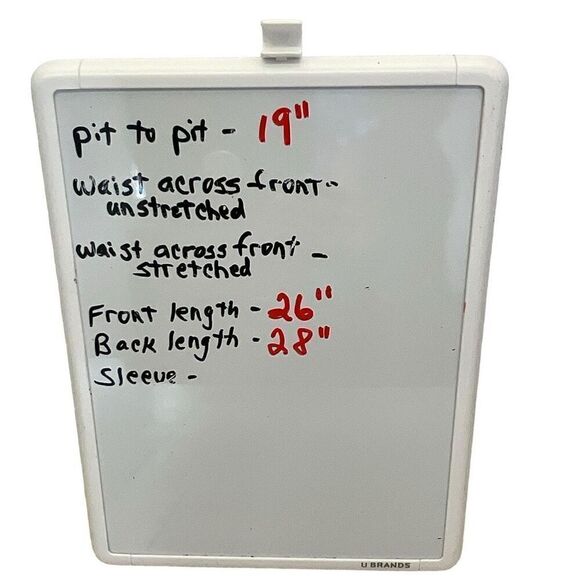 pit to pit - 19"
waist across front -
unstretched
waist across front -
stretched
Front length - 26"
Back length - 28"
Sleeve -
U BRANDS